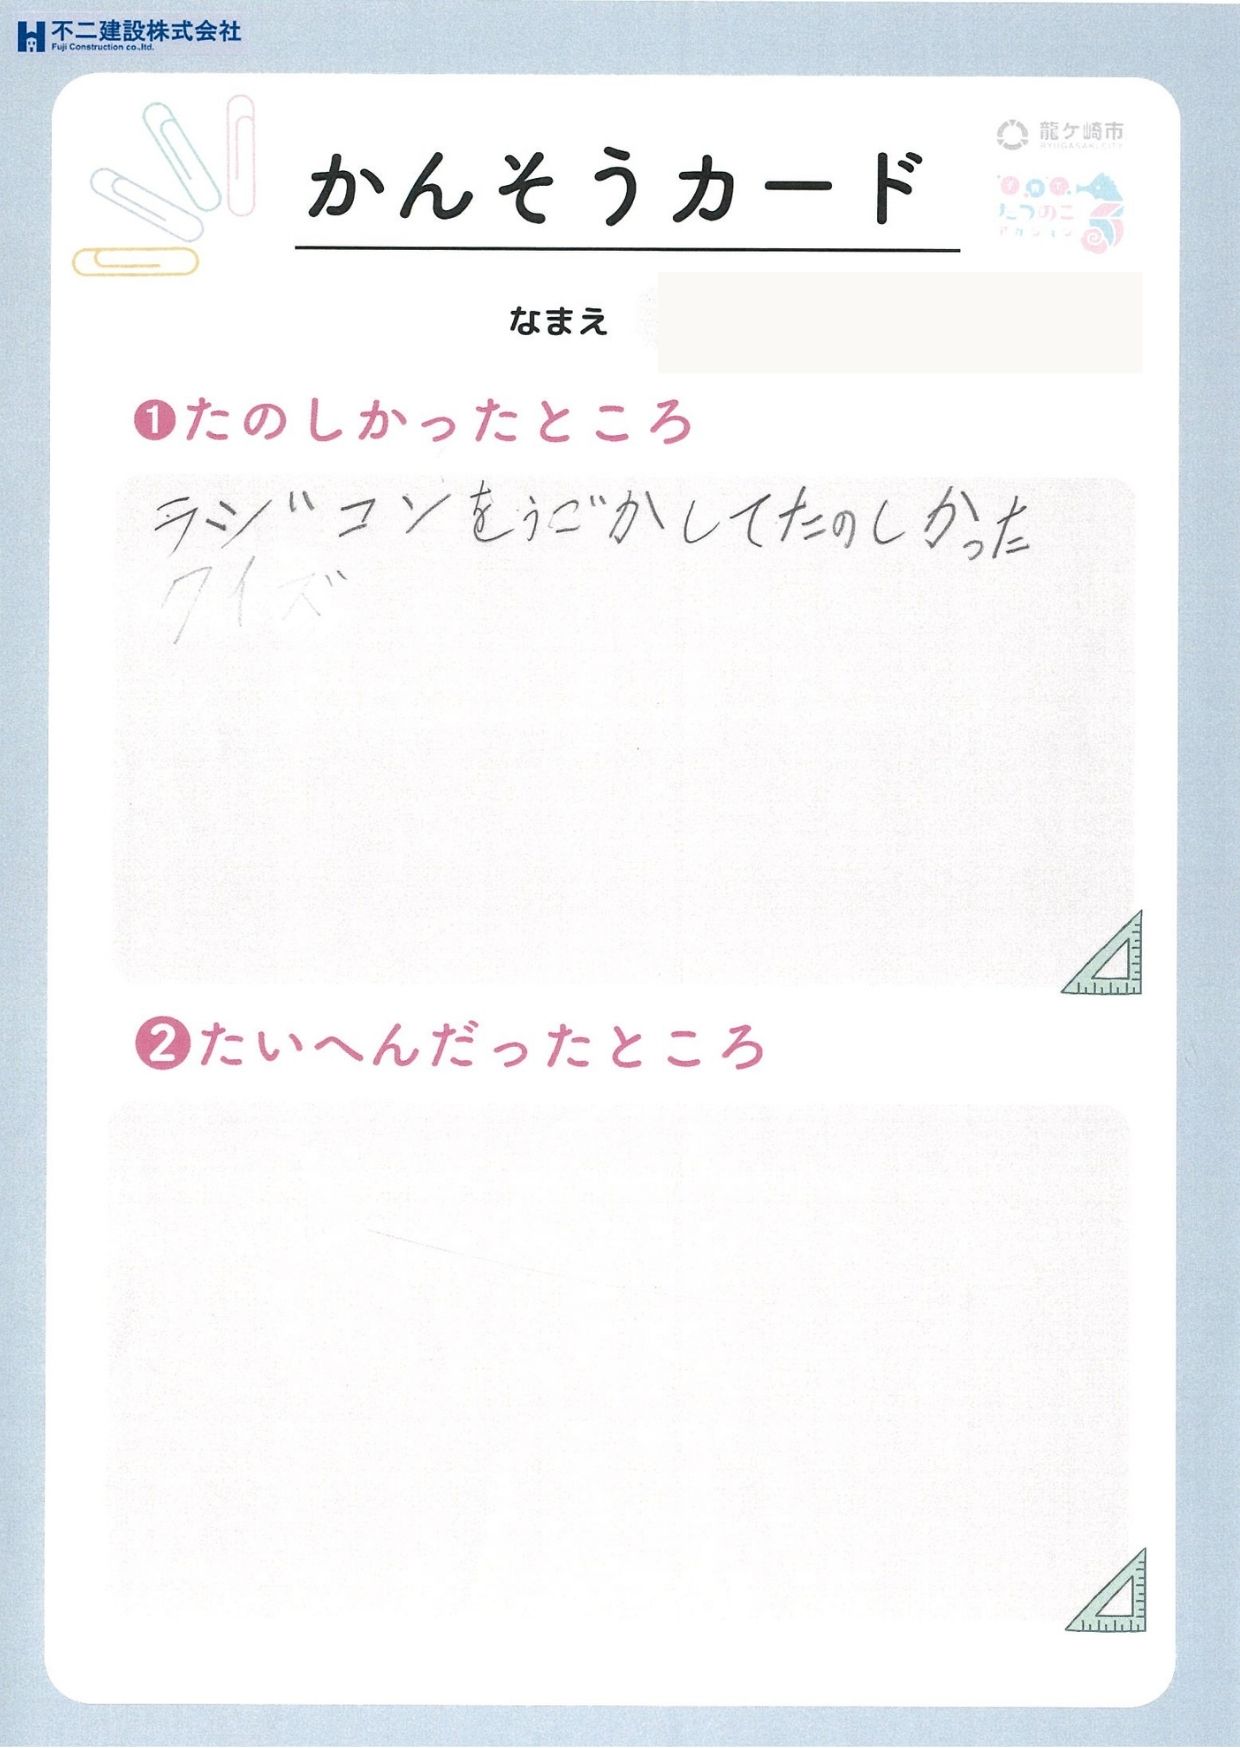 不二建設株式会社
Fuji Construction co.,ltd.
龍ケ崎市
RYUGASAKI CITY
かんそうカード
たつのこ
アクション
なまえ
❶たのしかったところ
ラジコンをうごかしてたのしかった
クイズ
❷たいへんだったところ